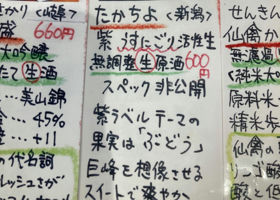 さかり <岐阜>
盛 660円
大吟醸
たて 生酒
美山錦
45%
+11
の代名詞
レッシュさが
たかちよ <新潟>
紫 うすにごり活性生
無調整生原酒 600円
スペック非公開
紫ラベル テーマの
果実は「ぶどう」
巨峰を想像させる
スイートで爽やか
せんきん
仙禽か
無濾過
原料米
精米歩
仙禽の
酸と